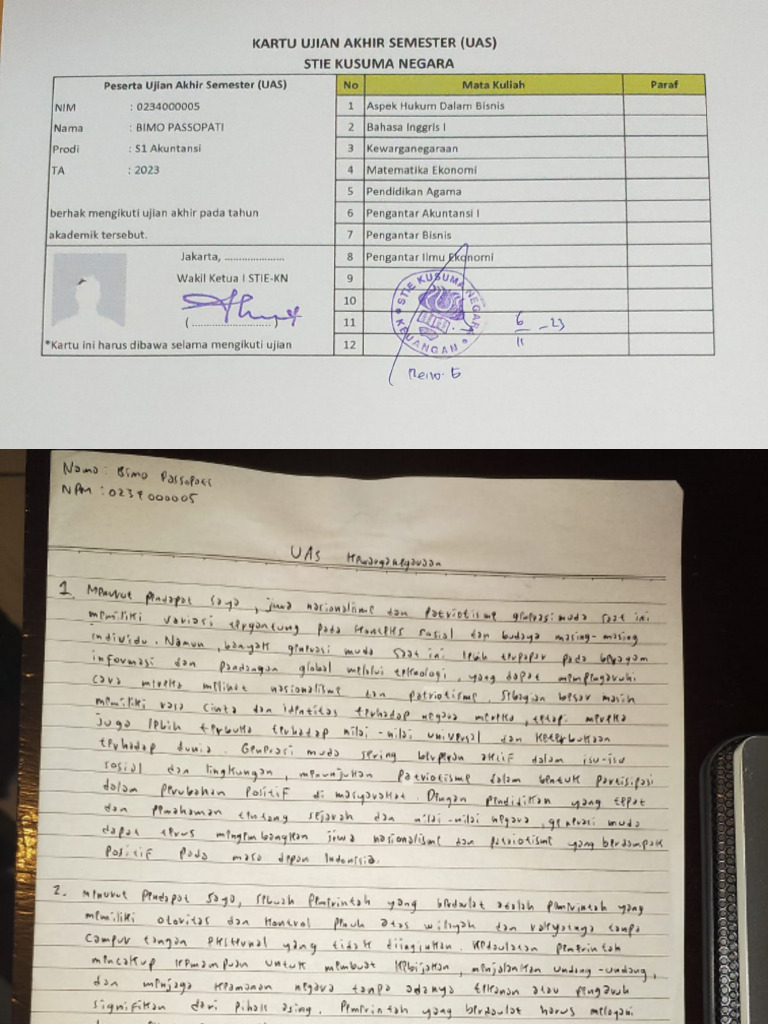 KARTU UJIAN AKHIR SEMESTER (UAS)
STIE KUSUMA NEGARA
Peserta Ujian Akhir Semester (UAS)
NIM : 0234000005
Nama : BIMO PASSOPATI
Prodi : S1 Akuntansi
TA : 2023
berhak mengikuti ujian akhir pada tahun
akademik tersebut.
Jakarta, .....................
Wakil Ketua I STIE-KN
( ........................... )
*Kartu ini harus dibawa selama mengikuti ujian
No Mata Kuliah Paraf
1 Aspek Hukum Dalam Bisnis
2 Bahasa Inggris I
3 Kewarganegaraan
4 Matematika Ekonomi
5 Pendidikan Agama
6 Pengantar Akuntansi I
7 Pengantar Bisnis
8 Pengantar Ilmu Ekonomi
9
10
11
12
STIE KUSUMA NEGARA
KEUANGAN
6/11 - 23
Nama : Bimo Passopati
NPM : 0234000005
UAS Kewarganegaraan
1. Menurut Pendapat saya, jiwa nasionalisme dan Patriotisme generasi muda saat ini
memiliki variasi tergantung pada konteks sosial dan budaya masing-masing
individu. Namun, banyak generasi muda saat ini lebih terpapar pada beragam
informasi dan Pandangan global melalui teknologi, yang dapat mempengaruhi
cara mereka melihat nasionalisme dan patriotisme. Sebagian besar masih
memiliki rasa cinta dan identitas terhadap negara mereka, tetapi mereka
juga lebih terbuka terhadap nilai-nilai universal dan keterbukaan
terhadap dunia. Generasi muda sering berperan aktif dalam isu-isu
sosial dan lingkungan, menunjukan Patriotisme dalam bentuk Partisipasi
dalam perubahan Positif di masyarakat. Dengan pendidikan yang tepat
dan pemahaman tentang sejarah dan nilai-nilai negara, generasi muda
dapat terus mengembangkan jiwa nasionalisme dan patriotisme yang berdampak
Positif Pada masa depan Indonesia.
2. Menurut Pendapat Saya, sebuah Pemerintah yang berdaulat adalah pemerintah yang
memiliki otoritas dan kontrol penuh atas wilayah dan rakyatnya tanpa
campur tangan eksternal yang tidak diinginkan. Kedaulatan pemerintah
mencakup kemampuan untuk membuat kebijakan, menjalankan undang-undang,
dan menjaga keamanan negara tanpa adanya tekanan atau pengaruh
signifikan dari Pihak asing. Pemerintah yang berdaulat harus melayani